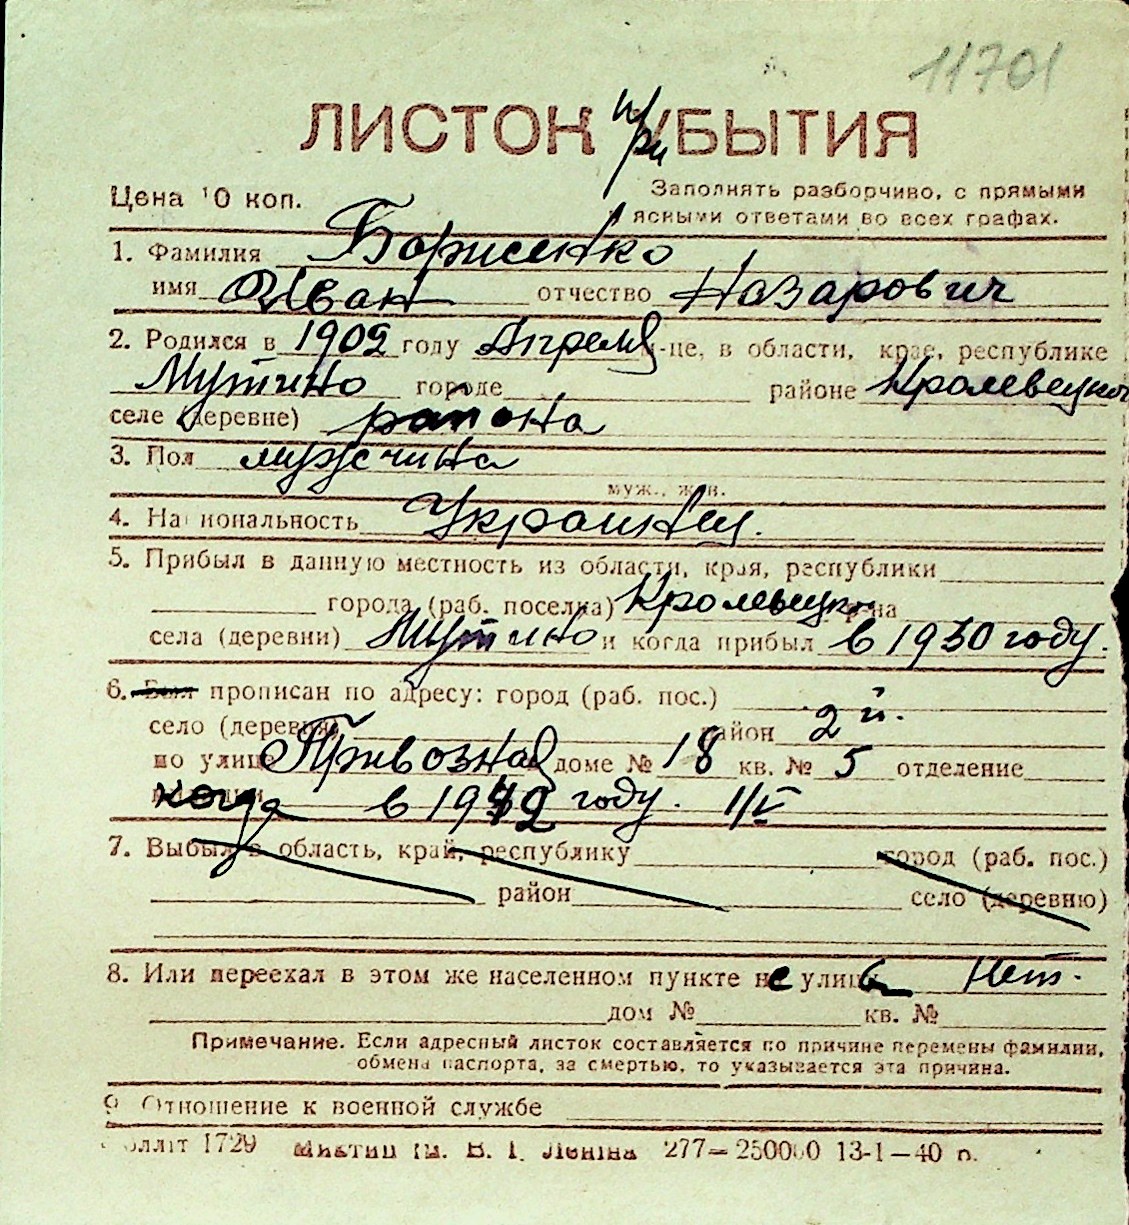 11701
ЛИСТОК при УБЫТИЯ
Цена 10 коп.
Заполнять разборчиво, с прямыми
и ясными ответами во всех графах.
1. Фамилия Борисенко
имя Иван отчество Назарович
2. Родился в 1902 году Апреля м-це, в области, крае, республике
Мутино городе районе Кролевецкого
селе (деревне) района
3. Пол мужчина
муж., жен.
4. Национальность Украинец.
5. Прибыл в данную местность из области, края, республики
города (раб. поселка) Кролевецк р-на
села (деревни) Мутино и когда прибыл в 1930 году.
6. Был прописан по адресу: город (раб. пос.)
село (деревня) район 2й.
по улице Привозная доме № 18 кв. № 5 отделение
милиции когда в 1942 году. 1/V
7. Выбыл в область, край, республику город (раб. пос.)
район село (деревню)
8. Или переехал в этом же населенном пункте не улиц Нет.
дом № кв. №
Примечание. Если адресный листок составляется по причине перемены фамилии,
обмена паспорта, за смертью, то указывается эта причина.
9 Отношение к военной службе
олліт 1729 Миктип ім. В. І. Леніна 277—250000 13-1—40 р.